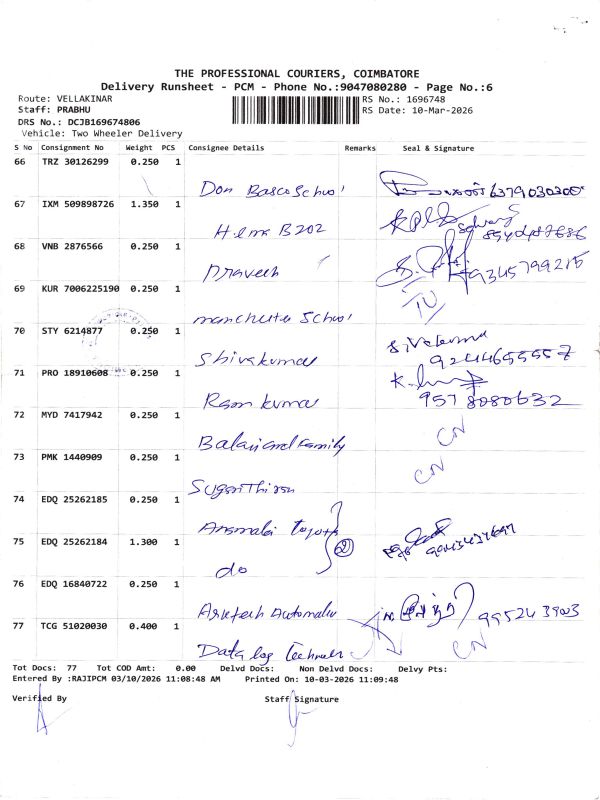 THE PROFESSIONAL COURIERS, COIMBATORE
Delivery Runsheet - PCM - Phone No.:9047080280 - Page No.:6
Route: VELLAKINAR
RS No.: 1696748
Staff: PRABHU
RS Date: 10-Mar-2026
DRS No.: DCJB169674806
Vehicle: Two Wheeler Delivery
S No Consignment No Weight PCS Consignee Details Remarks Seal & Signature
66 TRZ 30126299 0.250 1
Don Bosco School 6379030300
67 IXM 509898726 1.350 1
Hema B202
68 VNB 2876566 0.250 1
Praveen 9345799215
69 KUR 7006225190 0.250 1
manchester School
70 STY 6214877 0.250 1
Shivakumar 9244655557
71 PRO 18910608 0.250 1
Ram kumar 9578080632
72 MYD 7417942 0.250 1
Balaji and Family CN
73 PMK 1440909 0.250 1
CN
74 EDQ 25262185 0.250 1
75 EDQ 25262184 1.300 1
do 2
76 EDQ 16840722 0.250 1
77 TCG 51020030 0.400 1
Data log CN
Tot Docs: 77 Tot COD Amt: 0.00 Delvd Docs: Non Delvd Docs: Delvy Pts:
Entered By :RAJIPCM 03/10/2026 11:08:48 AM Printed On: 10-03-2026 11:09:48
Verified By Staff Signature